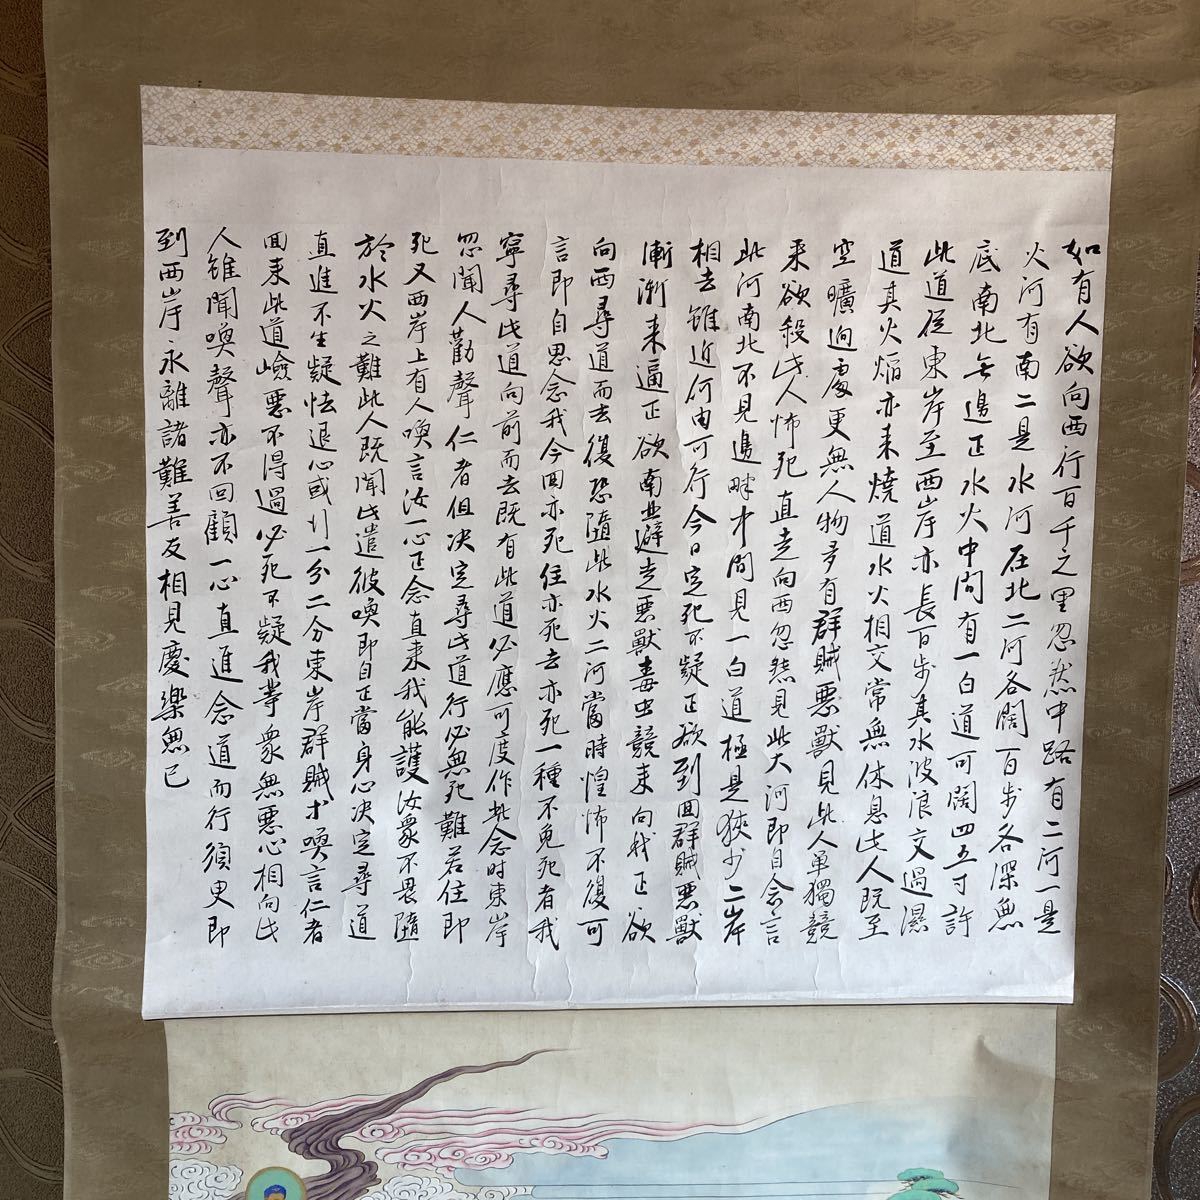 如有人欲向西行百千之里忽然中路有二河一是
火河有南二是水河在北二河各闊百步各深無
底南北無邊正水火中間有一白道可闊四五寸許
此道從東岸至西岸亦長百步其水波浪交過濕
道其火焔亦来燒道水火相交常無休息此人既至
空曠迥處更無人物多有群賊惡獣見此人單獨競
来欲殺此人怖死直走向西忽然見此大河即自念言
此河南北不見邊畔中間見一白道極是狹少二岸
相去雖近何由可行今日定死不疑正欲到回群賊惡獣
漸漸来逼正欲南北避走惡獣毒虫競来向我正欲
向西尋道而去復恐隨此水火二河當時惶怖不復可
言即自思念我今回亦死住亦死去亦死一種不免死者我
寧尋此道向前而去既有此道必應可度作此念時東岸
忽聞人勸聲仁者但决定尋此道行必無死難若住即
死又西岸上有人喚言汝一心正念直来我能護汝衆不畏隨
於水火之難此人既聞此遣彼喚即自正當身心决定尋道
直進不生疑怯退心或行一分二分東岸群賊才喚言仁者
回来此道嶮惡不得過必死不疑我等衆無惡心相向此
人雖聞喚聲亦不回顧一心直進念道而行須臾即
到西岸永離諸難善友相見慶樂無已